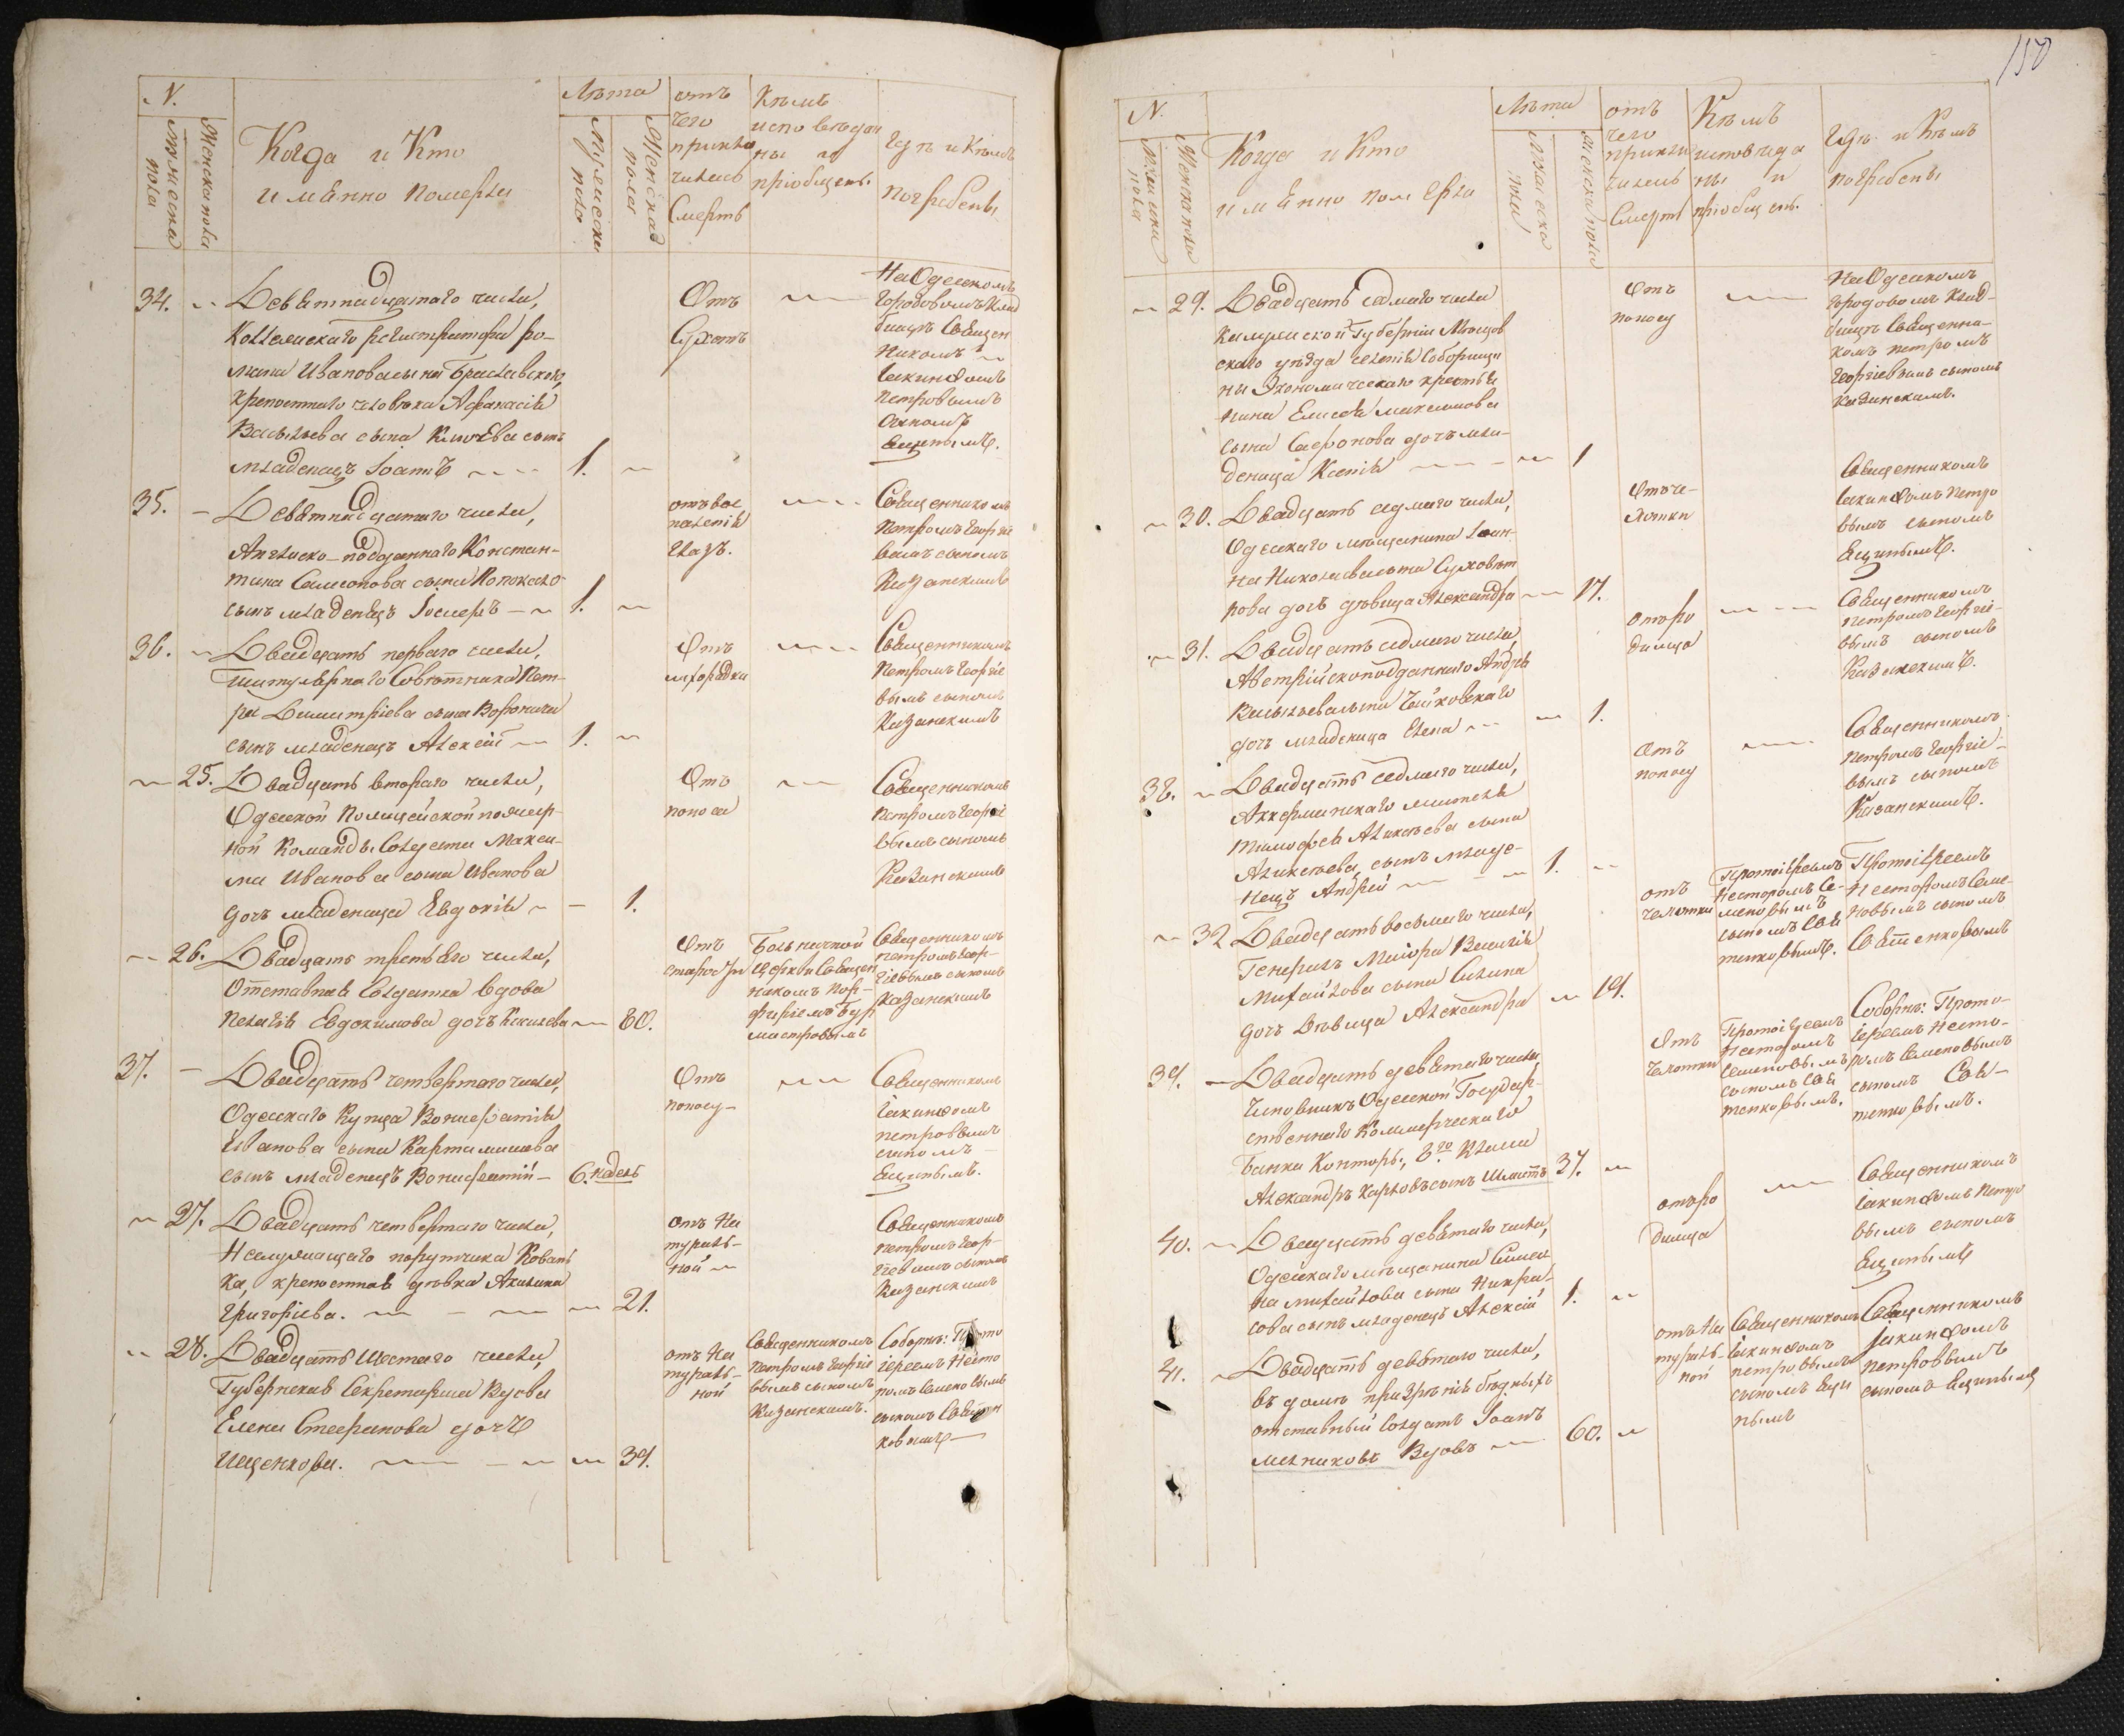 N.
Мужеска пола
Женска пола
Когда и Кто
имянно померли
Лѣта
Мужеска пола
Женска пола
отъ
чего
приклю
чилась
Смерть
Кѣмъ
исповѣдан
ны и
пріобщены.
Гдѣ и Кѣмъ
погребены
34. Девятнадцатаго числа,
Коллежскаго регистратора Ро-
мана Иванова сына Браславскаго,
крепостнаго человѣка Афанасія
Васильева сына Ключева сынъ
младенецъ Іоаннъ 1.
Отъ
Сухотъ
На Одесскомъ
городовомъ клад
бищѣ Священ
никомъ
Іакинфомъ
Петровымъ
сыномъ
Ещинымъ.
35. Девятнадцатаго числа,
Англиско-подданнаго Констан-
тина Самсонова сына
сынъ младенецъ Іосифъ 1.
отъ вос
паленія
глазъ.
Священникомъ
Петромъ Георгіе
вымъ сыномъ
Казанскимъ
36. Двадцать перваго числа,
Титулярнаго Совѣтника Пет-
ра Димитріева сына Воронича
сынъ младенецъ Алексій 1.
Отъ
лихорадки
Священникомъ
Петромъ Георгіе
вымъ сыномъ
Казанскимъ
25. Двадцать втораго числа,
Одесской Полицейской пожар-
ной Команды Солдата Макси-
ма Иванова сына Иванова
дочь младеница Евдокія 1.
Отъ
поноса
Священникомъ
Петромъ Георгіе
вымъ сыномъ
Казанскимъ
26. Двадцать третьяго числа,
Отставная Солдатка вдова
Пелагія Евдокимова дочь Киселева 80.
Отъ
старости
Больничной
Церкви Священ
никомъ Пор-
фиріемъ Бур
мистровымъ
Священникомъ
Петромъ Геор-
гіевымъ сыномъ
Казанскимъ
37. Двадцать четвертаго числа,
Одесскаго Купца Вонифатія
Иванова сына Картамышева
сынъ младенецъ Вонифатій 6. недель
Отъ
поносу
Священникомъ
Іакинфомъ
Петровымъ
сыномъ
Ещинымъ.
27. Двадцать четвертаго числа,
Неслужащаго порутчика Ковань
ка, крепостная дѣвка Акилина
Григоріева. 21.
отъ На
тураль-
ной
Священникомъ
Петромъ Геор-
гіевымъ сыномъ
Казанскимъ
28. Двадцать шестаго числа,
Губернская Секретарша Вдова
Елена Стефанова дочь
Ищенкова. 39.
отъ На
тураль-
ной
Священникомъ
Петромъ Георгіе
вымъ сыномъ
Казанскимъ.
Соборнъ: Прото
іереемъ Несто
ромъ Семеновымъ
сыномъ
ковымъ
150
N.
Мужеска пола
Женска пола
Когда и Кто
имянно померли
Лѣта
Мужеска пола
Женска пола
отъ
чего
приклю
чилась
Смерть
Кѣмъ
исповѣда
ны и
пріобщены.
Гдѣ и Кѣмъ
погребены
29. Двадцать седмаго числа
Калужской Губерніи Мѣщов
скаго уѣзда селенія Соборищи
ны Экономическаго крестья
нина Елисея Максимова
сына Сафонова дочь мла-
деница Ксенія 1
Отъ
поносу
На Одесскомъ
городовомъ клад-
бищѣ Священни-
комъ Петромъ
Георгіевымъ сыномъ
Казанскимъ.
30. Двадцать седмаго числа,
Одесскаго мѣщанина Іоан-
на Николаева сына
рова дочь дѣвица Александра 17.
Отъ че-
хотки
Священникомъ
Іакинфомъ Петро
вымъ сыномъ
Ещинымъ.
31. Двадцать седмаго числа,
Австрійскоподданнаго Андрея
Васильева сына Чайковскаго
дочь младеница Елена 1.
отъ ро
димца
Священникомъ
Петромъ Георгіе-
вымъ сыномъ
Казанскимъ.
38. Двадцать седмаго числа,
Аккерманскаго жителя
Тимофея Алексѣева сына
Алексѣева, сынъ младе-
нецъ Андрей 1.
Отъ
поносу
Священникомъ
Петромъ Георгіе-
вымъ сыномъ
Казанскимъ.
32 Двадцать восьмаго числа,
Генералъ Маіора Василія
Михайлова сына Силина
дочь Дѣвица Александра 19.
отъ
чехотки
Протоіереемъ
Несторомъ Се-
меновымъ
сыномъ Свя
тенковымъ.
Протоіереемъ
Несторомъ Семе-
новымъ сыномъ
Святенковымъ
39. Двадцать девятаго числа,
Чиновникъ Одесской Государ-
ственнаго Коммерческаго
Банка Конторы, 8го Класса
Александръ Карловъ сынъ Шмитъ 37.
Отъ
Чехотки
Протоіереемъ
Несторомъ
Семеновымъ
сыномъ Свя
тенковымъ.
Соборнъ: Прото-
іереемъ Несто-
ромъ Семеновымъ
сыномъ Свя-
тенковымъ.
40. Двадцать девятаго числа,
Одесскаго мѣщанина Симео
на Михайлова сына Никра-
сова сынъ младенецъ Алексій 1.
отъ ро
димца
Священникомъ
Іакинфомъ Петро
вымъ сыномъ
Ещинымъ
41. Двадцать девятаго числа,
въ домѣ призрѣнія бѣдныхъ
отставный Солдатъ Іоаннъ
Мелниковъ Вдовъ 60.
отъ На
тураль-
ной
Священникомъ
Іакинфомъ
Петровымъ
сыномъ Ещи
нымъ
Священникомъ
Іакинфомъ
Петровымъ
сыномъ Ещинымъ